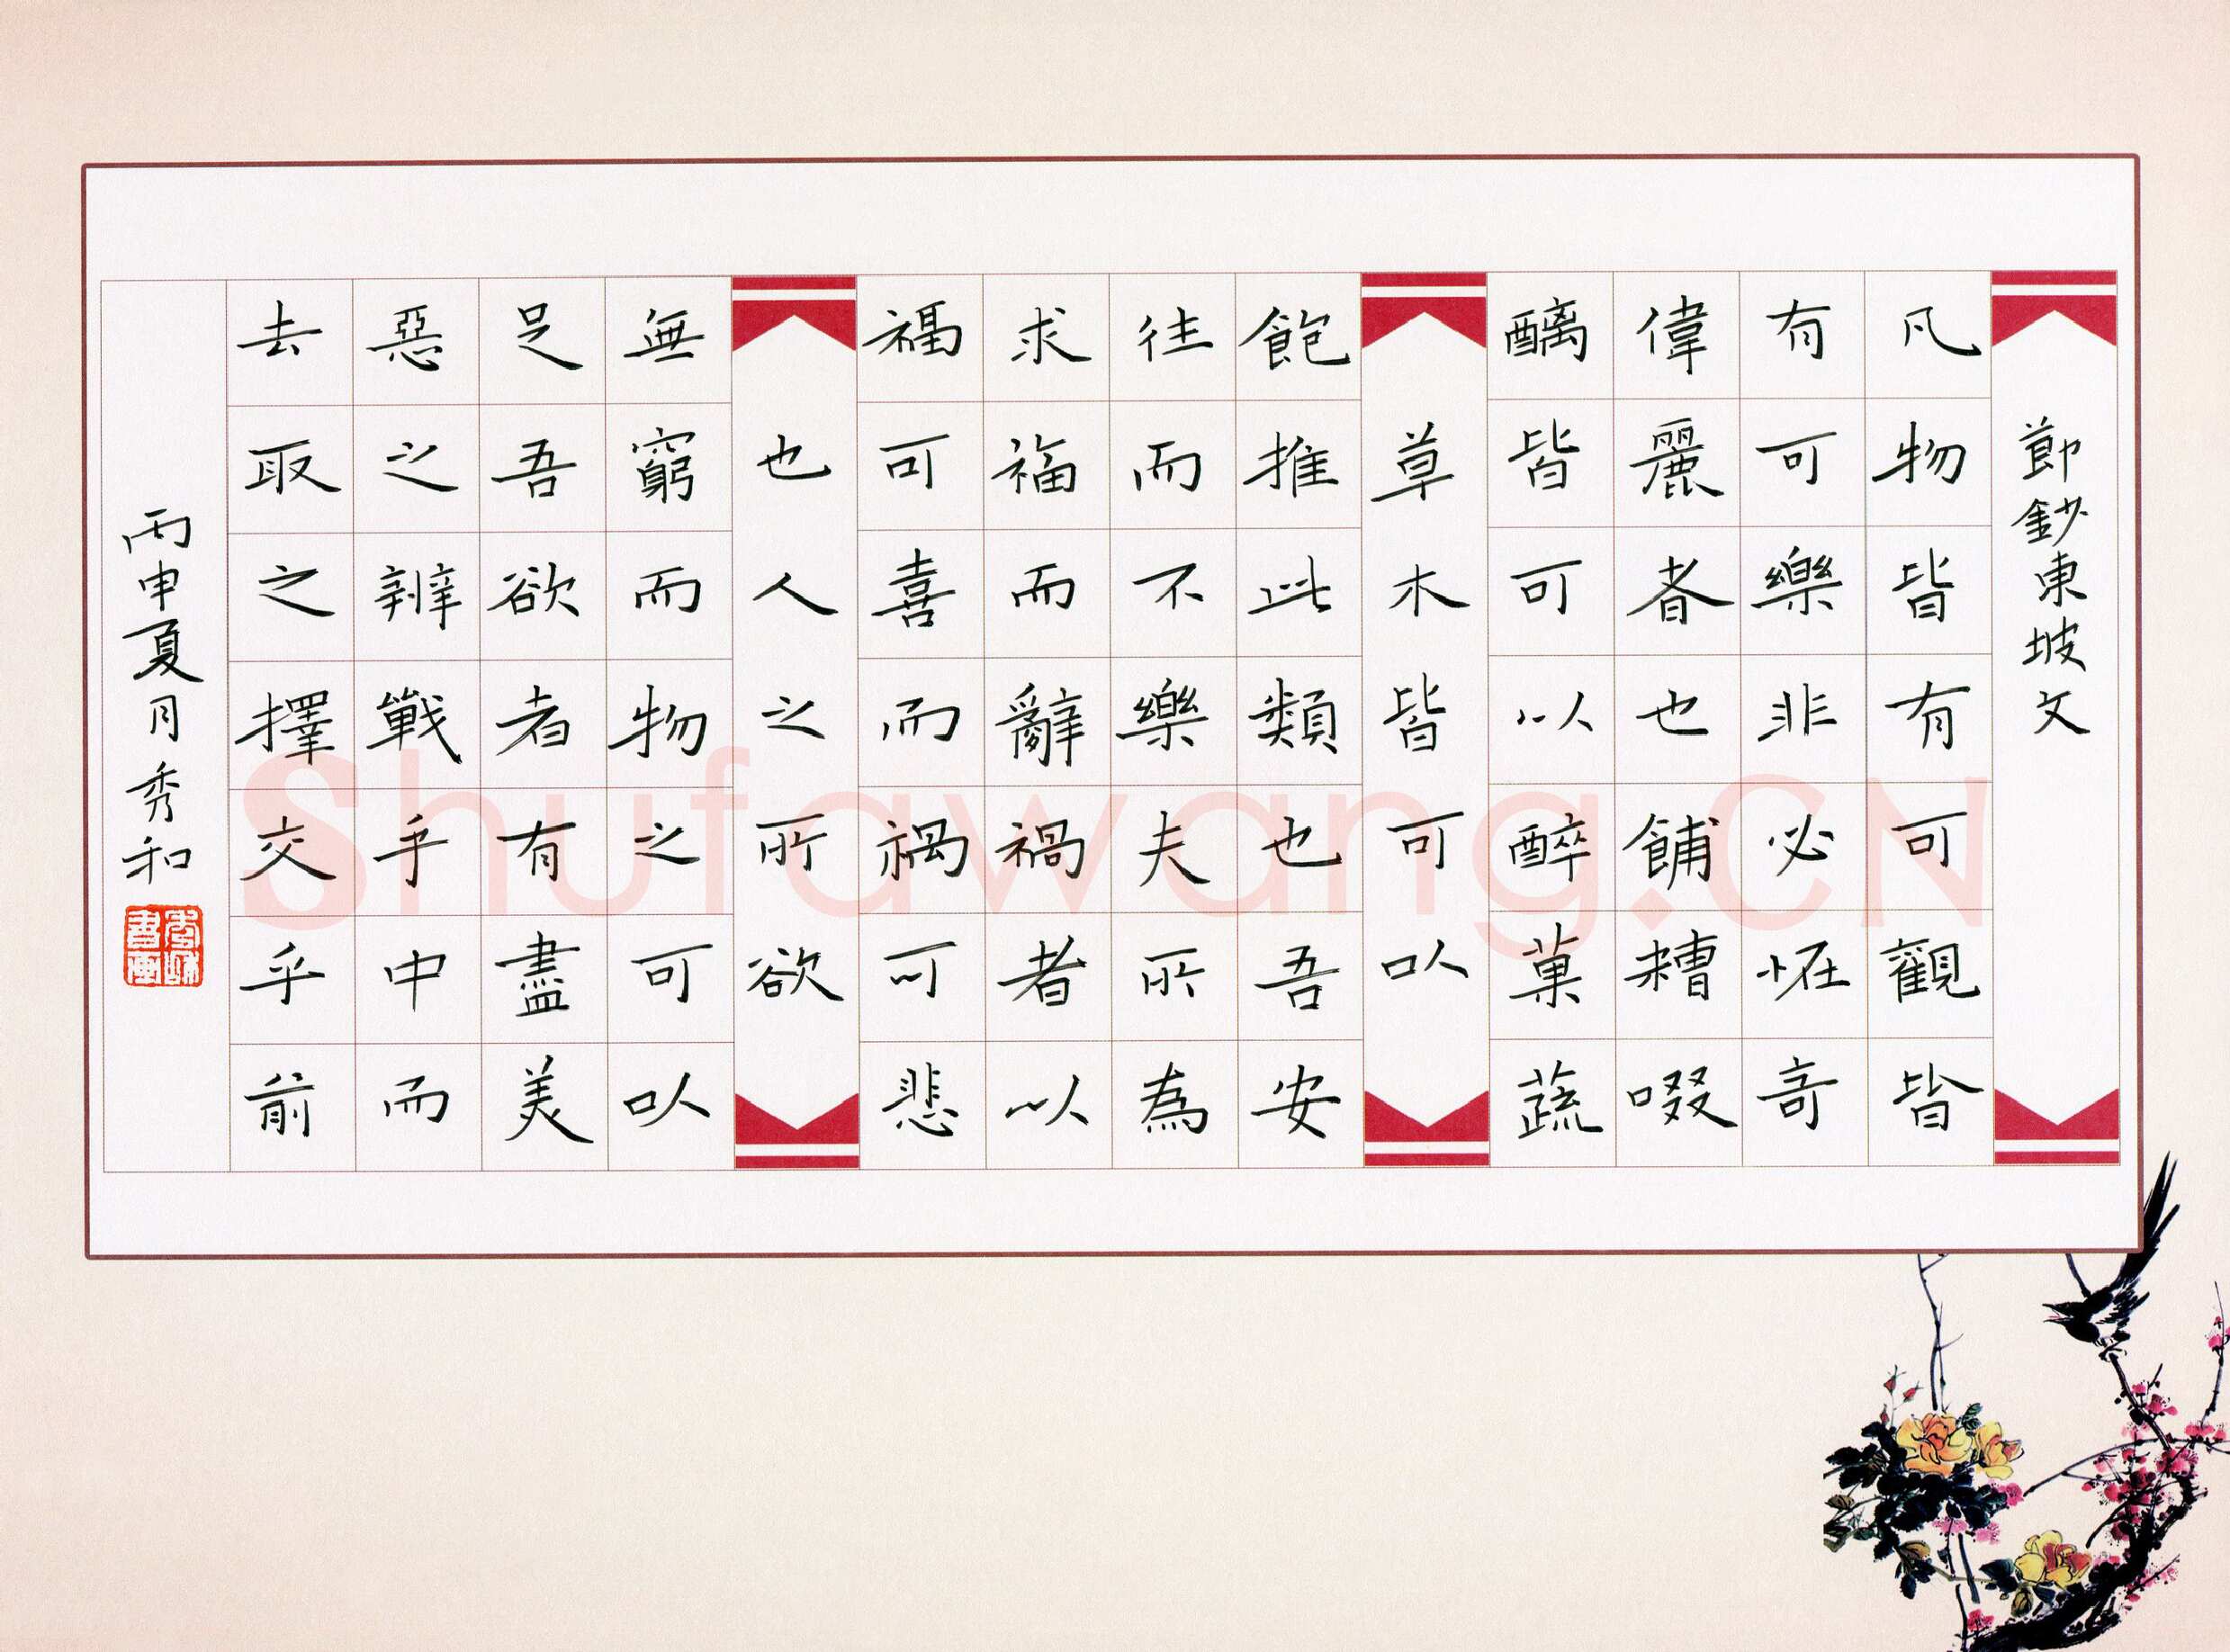 節鈔東坡文
凡物皆有可觀皆
有可樂非必恠奇
偉麗者也餔糟啜
醨皆可以醉菓蔬
草木皆可以
飽推此類也吾安
往而不樂夫所為
求福而辭禍者以
福可喜而禍可悲
也人之所欲
無窮而物之可以
足吾欲者有盡美
惡之辨戰乎中而
去取之擇交乎前
丙申夏月秀和
Shufawang.CN